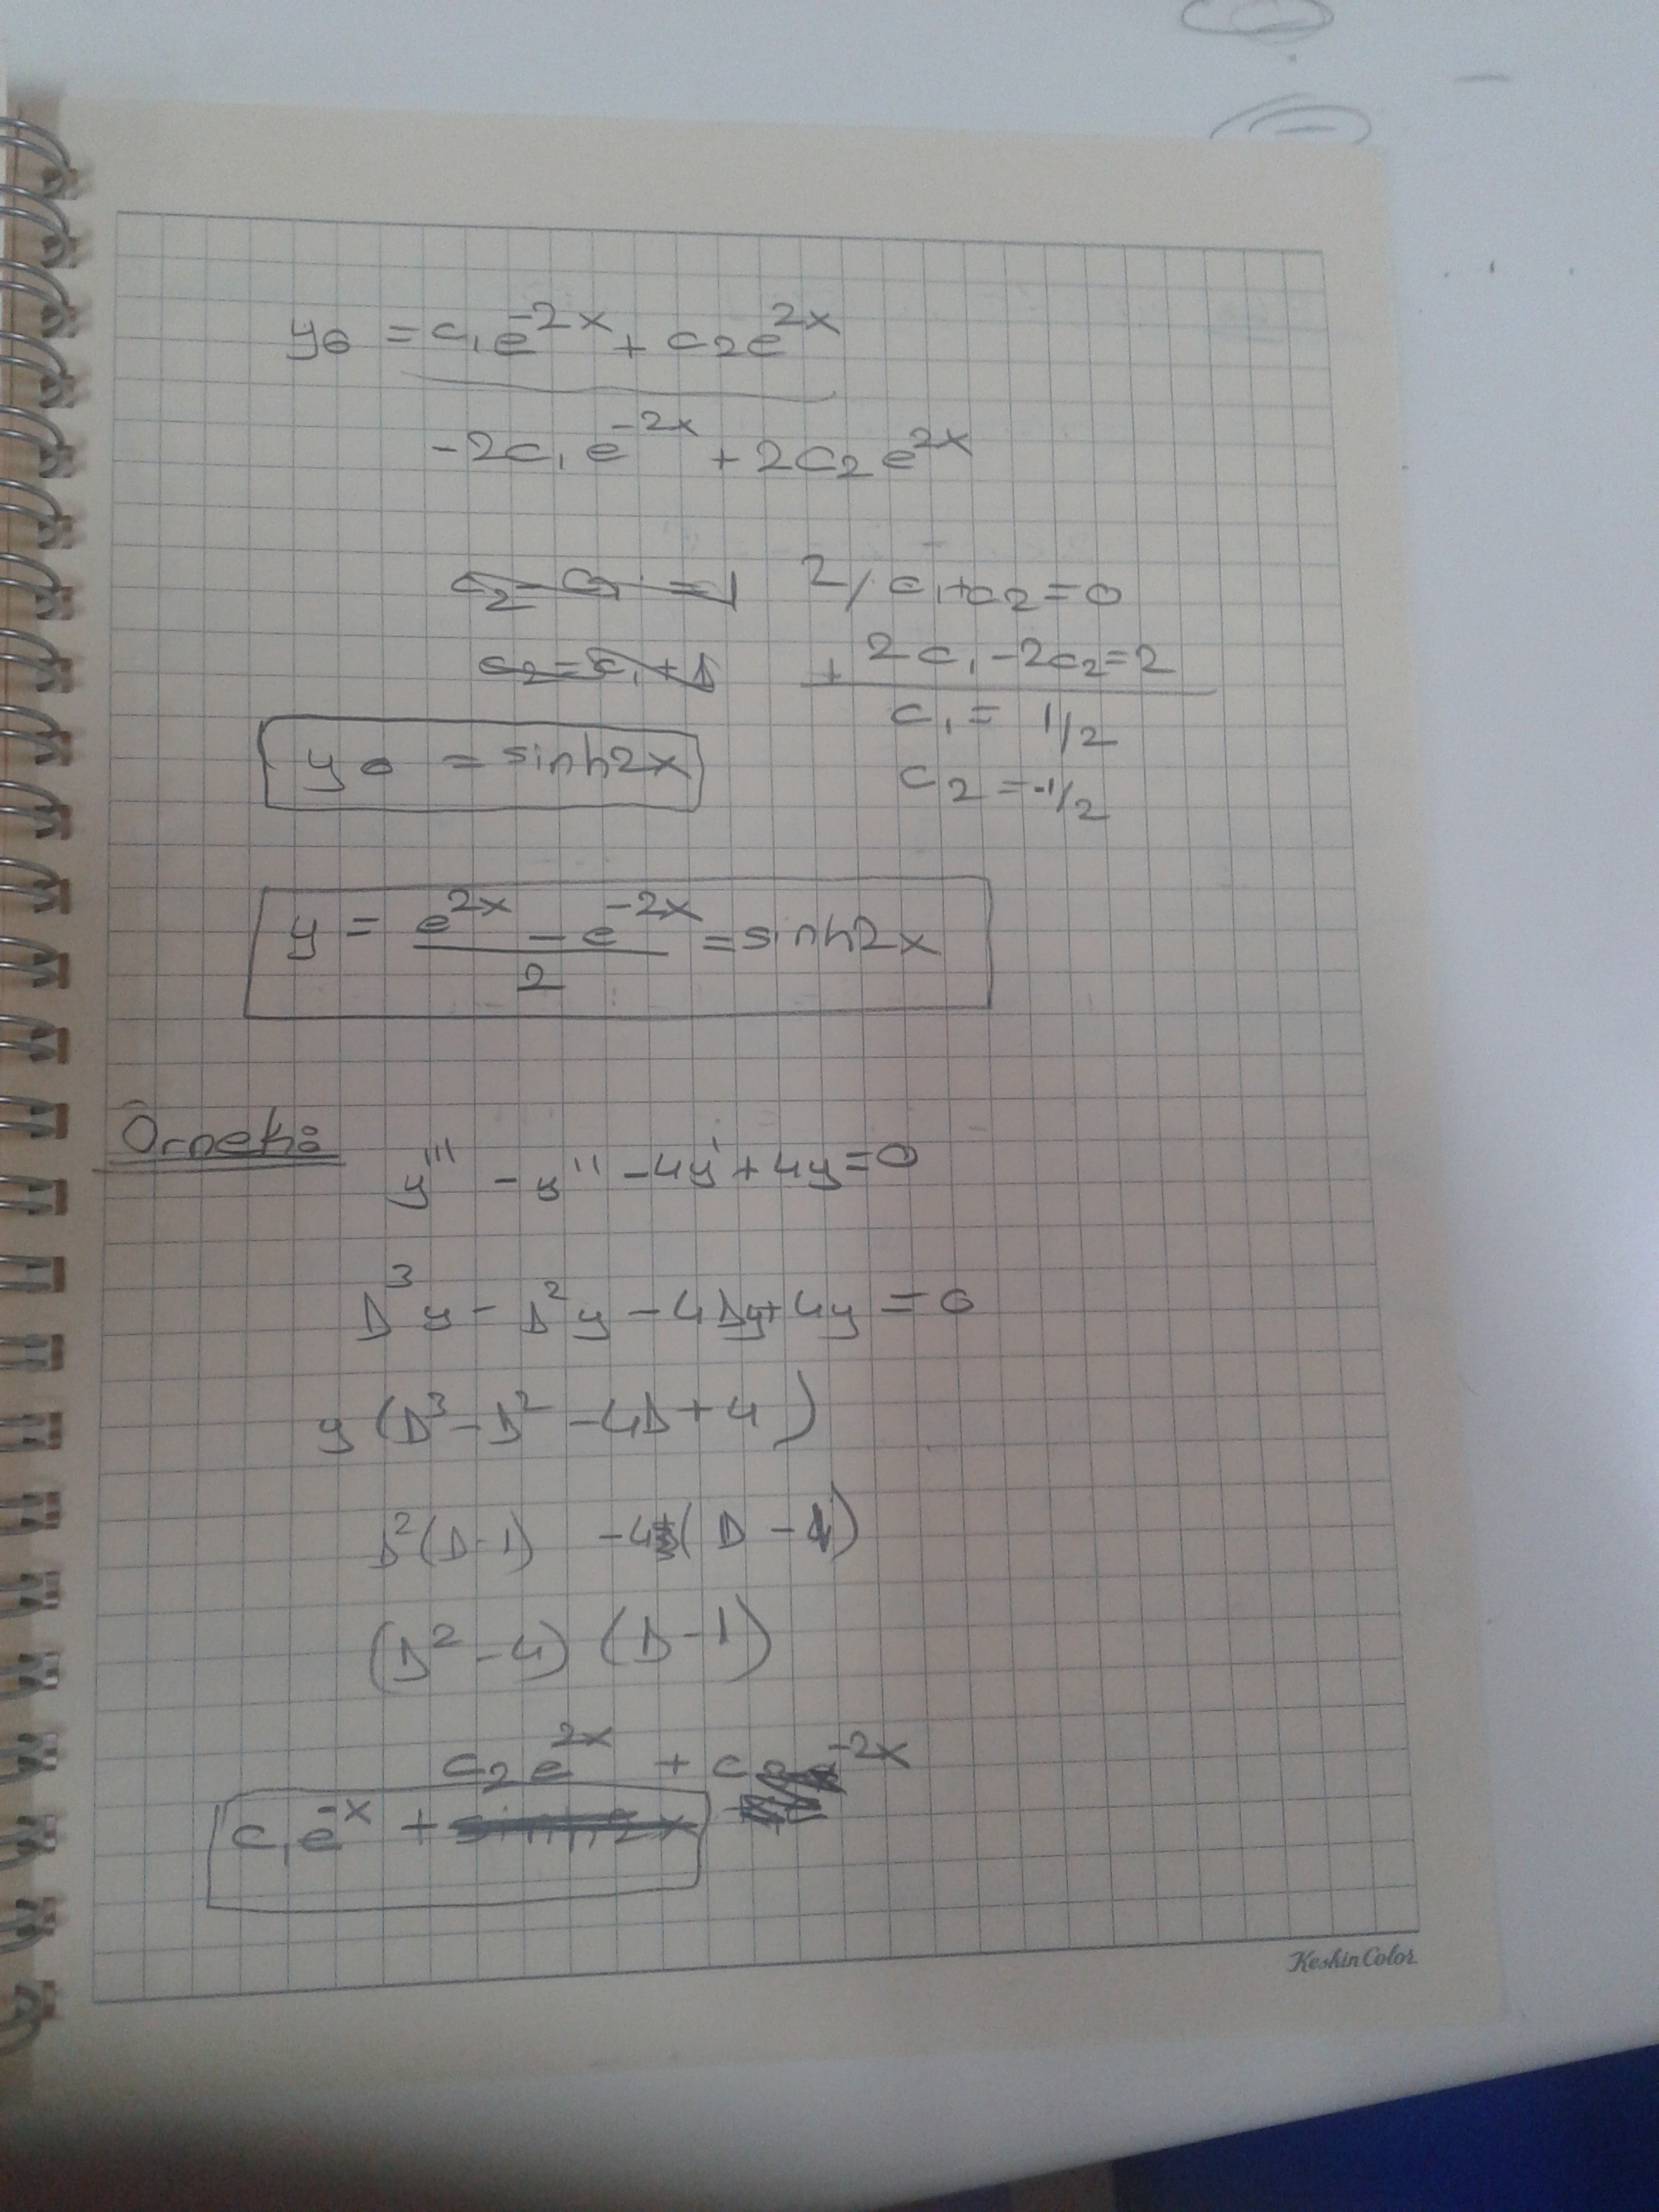 y₀ = c₁e^-2x + c₂e^2x
-2c₁e^-2x + 2c₂e^2x
c₂ - c₁ = 1 2/ c₁+c₂=0
c₂ = c₁ + 1 + 2c₁-2c₂=2
c₁ = 1/2
y₀ = sinh2x
c₂ = -1/2
y = (e^2x - e^-2x)/2 = sinh2x
Örnek:
y''' - y'' - 4y' + 4y = 0
D³y - D²y - 4Dy + 4y = 0
y (D³ - D² - 4D + 4)
D²(D-1) -4(D - 1)
(D² - 4) (D - 1)
c₂e^2x + c -2x
c₁e^-x + sinh2x
Keskin Color